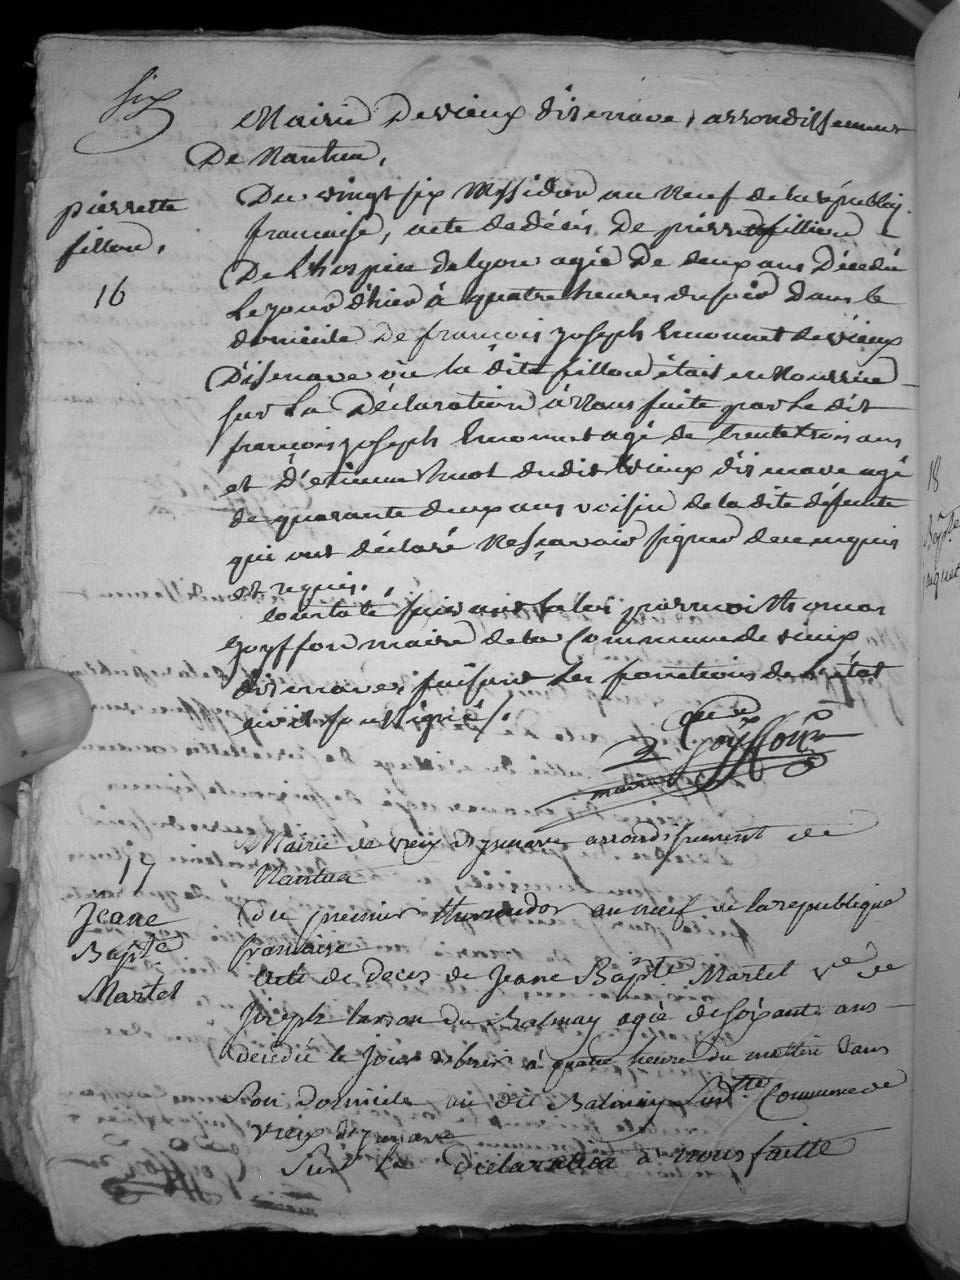 six
Mairie De vieux disenave, arrondissement
De Nantua,
pierrette
fillion,
16
Du vingt six Messidor an Neuf de la républiq.
francaise, acte de décès De pierrette fillion
De L'hospice de lyon agée De deux ans Décédée
Le jour d'hier à quatre heures du soir Dans le
domicile De françois joseph Emonnet de vieux
D'isenave où la dite fillion était en Nourrice
sur La Déclaration à Nous faite par Le dit
françois joseph Emonnet agé de trente trois ans
et D'etienne huot dudit vieux disenave agé
de quarante deux ans voisin de la dite défunte
qui ont déclaré Ne sçavoir signer de ce enquis
et requis,
Constaté suivant la loi par moi thomas
goyffon maire de la Commune de vieux
disenave, faisant les fonctions de l'état
civil soussigné.
Goyffon
maire
Mairie de vieux disenave arrondissement de
Nantua
17
Jeane
Bapte
Martel
Du premier thermidor an neuf de la republique
francaise
acte de deces de Jeane Bapte Martel ve de
Joseph du Balmay agée de soixante ans
decedée le jour d'hier à quatre heure du mattin dans
son domicile au dit Balmay susdtte Commune de
vieux disenave
Sur la declaration à nous faitte
18
Bapte